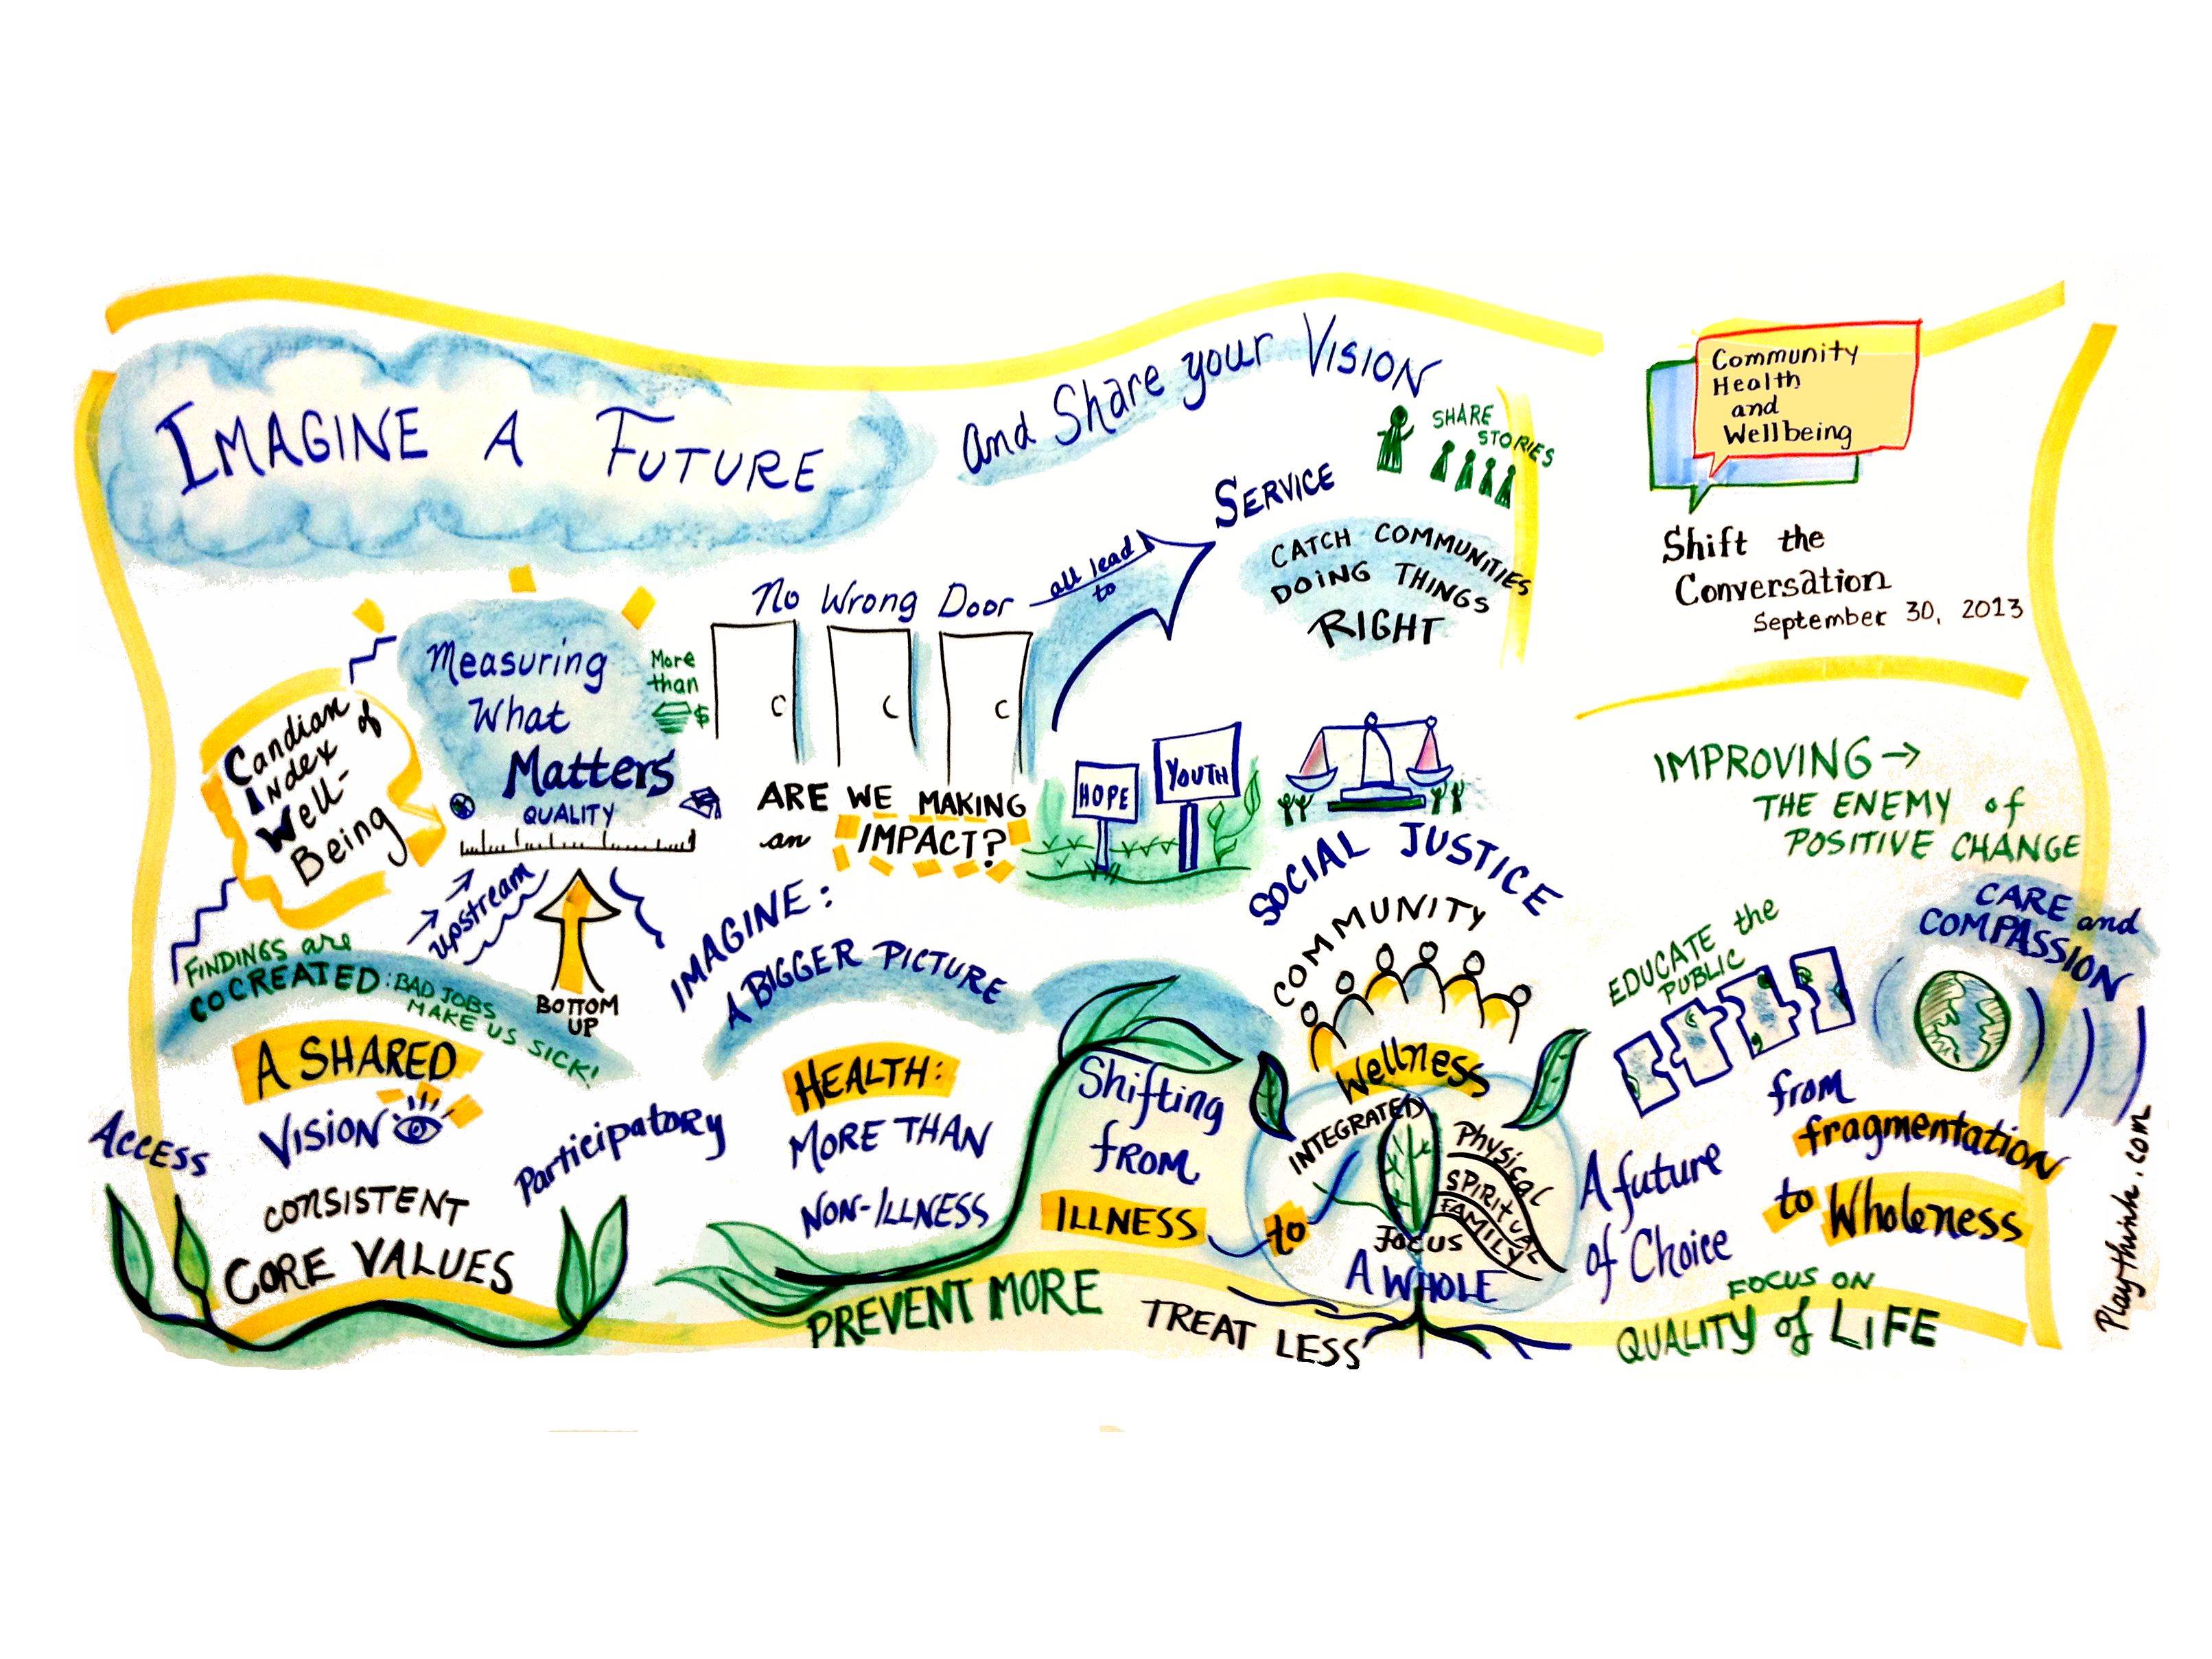 IMAGINE A FUTURE
and Share your VISION
SHARE
STORIES
SERVICE
CATCH COMMUNITIES
DOING THINGS
RIGHT
Community
Health
and
Wellbeing
Shift the
Conversation
September 30, 2013
No Wrong Door
all lead
to
Measuring
What
Matters
QUALITY
More
than
$
Candian
INdex of
Well-
Being
C
C
C
ARE WE MAKING
an IMPACT?
HOPE
YOUTH
SOCIAL JUSTICE
IMPROVING →
THE ENEMY of
POSITIVE CHANGE
upstream
BOTTOM
UP
FINDINGS are
COCREATED: BAD JOBS
MAKE US SICK!
A SHARED
VISION
CONSISTENT
CORE VALUES
ACCESS
Participatory
IMAGINE:
A BIGGER PICTURE
HEALTH:
MORE THAN
NON-ILLNESS
Shifting
from
ILLNESS
to
COMMUNITY
Wellness
INTEGRATED
Physical
SPIRITUAL
FAMILY
FOCUS
A WHOLE
PREVENT MORE
TREAT LESS
EDUCATE the
PUBLIC
CARE and
COMPASSION
from
fragmentation
to Wholeness
A future
of Choice
FOCUS ON
QUALITY of LIFE
Playthink.com